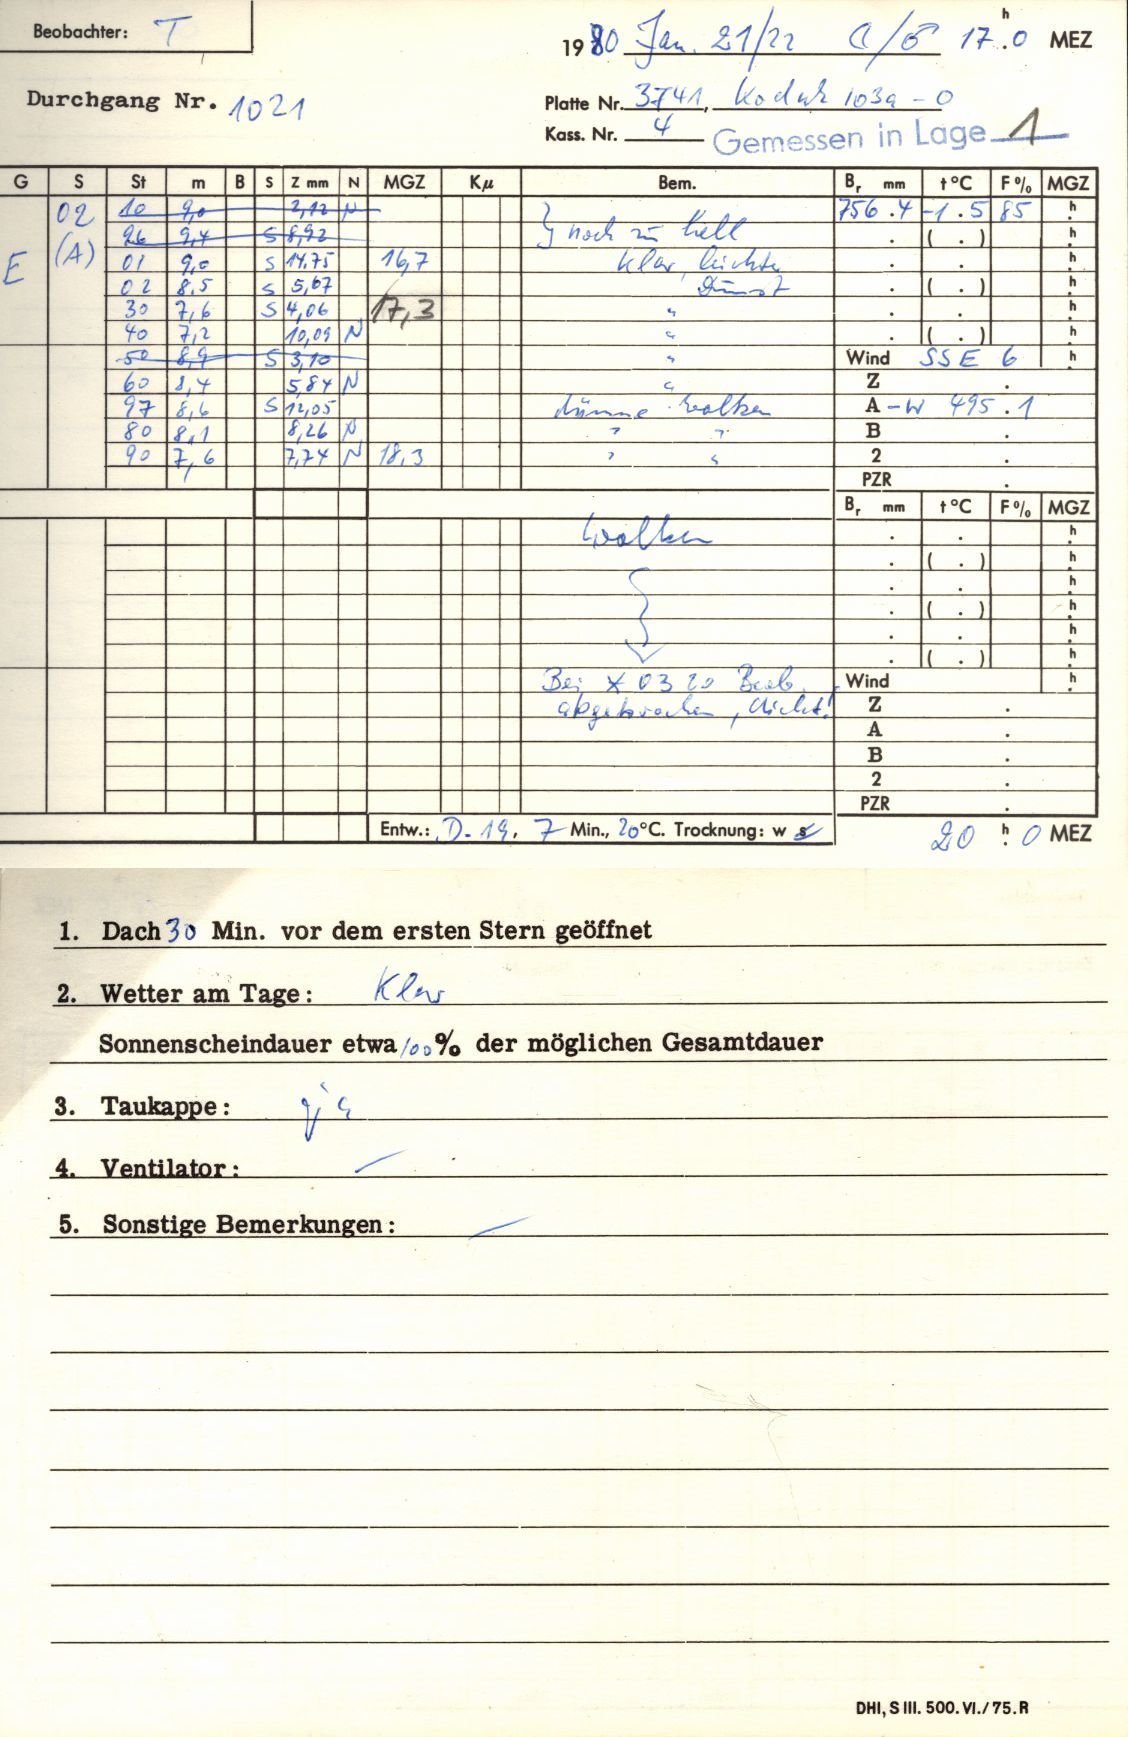 Beobachter: T
1980 Jan. 21/22 17.h0 MEZ
Durchgang Nr. 1021
Platte Nr. 3741, Kodak 103a-O
Kass. Nr. 4 Gemessen in Lage 1
G S St m B S Z mm N MGZ Kμ Bem. Br mm t°C F% MGZ
02 10 9,0 2,12 N 756.4 -1.5 85 h
(A) 26 9,4 S 8,92 } noch zu hell . ( . ) h
E 01 9,0 S 14,75 16,7 klar, leichter . . h
02 8,5 S 5,67 Dunst . ( . ) h
30 7,6 S 4,06 17,3 " . . h
40 7,2 10,09 N " . ( . ) h
50 8,9 S 3,10 " Wind SSE 6 h
60 8,4 5,84 N " Z .
97 8,6 S 12,05 dünne Wolken A -W 495.1
80 8,1 8,26 N " " B .
90 7,6 7,74 N 18,3 " " 2 .
PZR .
Br mm t°C F% MGZ
Wolken . . h
. ( . ) h
. . h
. ( . ) h
. . h
. ( . ) h
Bei * 03 20 Beob. Wind h
abgebrochen, dicht! Z .
A .
B .
2 .
PZR .
Entw.: D-19, 7 Min., 20°C. Trocknung: w s 20 h. 0 MEZ
1. Dach 30 Min. vor dem ersten Stern geöffnet
2. Wetter am Tage: Klar
Sonnenscheindauer etwa 100% der möglichen Gesamtdauer
3. Taukappe: ja
4. Ventilator: —
5. Sonstige Bemerkungen: —
DHI, S III. 500. VI./75. R